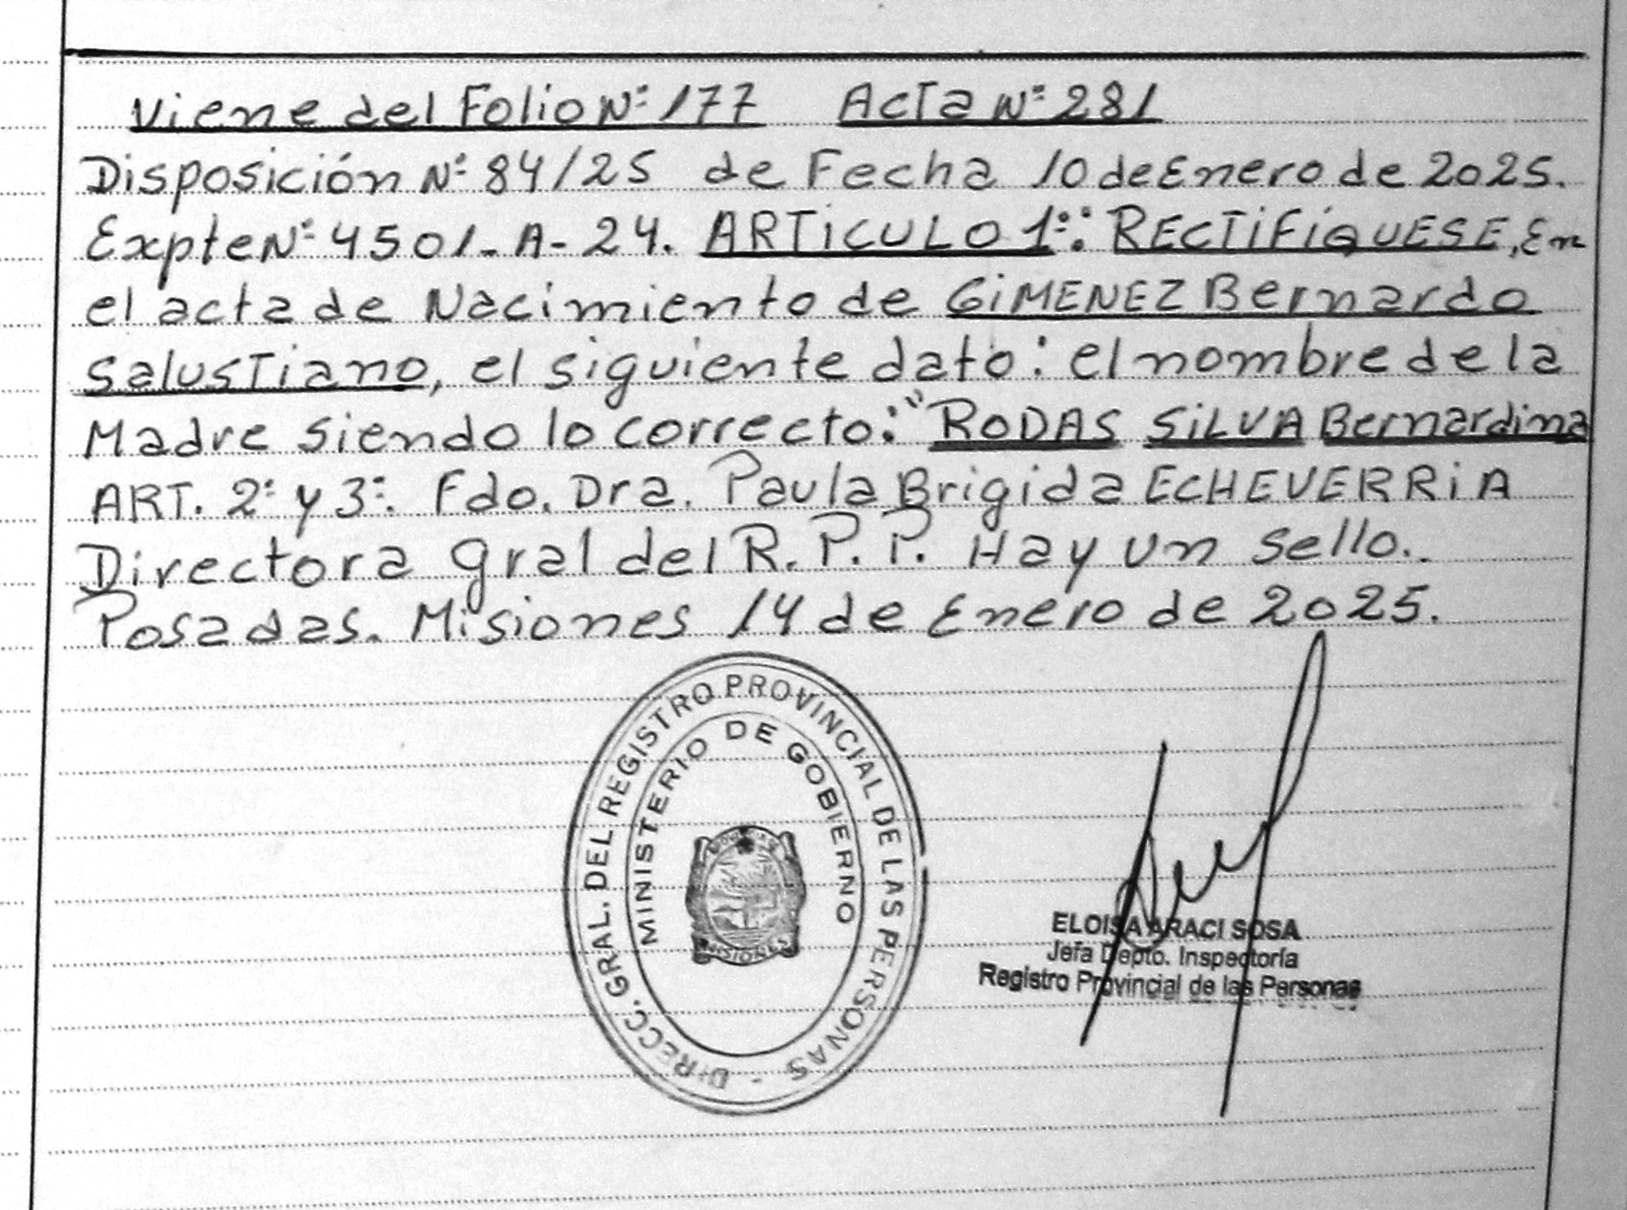 Viene del Folio Nº 177 Acta Nº 281
Disposición Nº 84/25 de Fecha 10 de Enero de 2025.
Expte Nº 4501-A-24. ARTICULO 1º: RECTIFIQUESE, En
el acta de Nacimiento de GIMENEZ Bernardo
Salustiano, el siguiente dato: el nombre de la
Madre siendo lo correcto: "RODAS SILVA Bernardina
ART. 2º y 3º. Fdo. Dra. Paula Brigida ECHEVERRIA
Directora gral del R.P.P. Hay un sello.
Posadas. Misiones 14 de Enero de 2025.
DIRECC. GRAL. DEL REGISTRO PROVINCIAL DE LAS PERSONAS -
MINISTERIO DE GOBIERNO
MISIONES
ELOISA ARACI SOSA
Jefa Depto. Inspectoría
Registro Provincial de las Personas